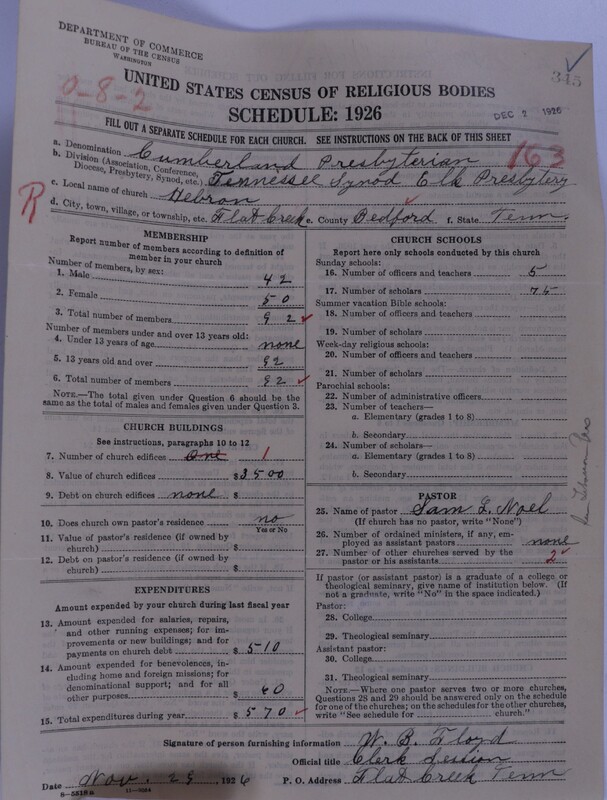 DEPARTMENT OF COMMERCE
BUREAU OF THE CENSUS
WASHINGTON
345
0-8-2
UNITED STATES CENSUS OF RELIGIOUS BODIES
SCHEDULE: 1926
DEC 2 1926
FILL OUT A SEPARATE SCHEDULE FOR EACH CHURCH. SEE INSTRUCTIONS ON THE BACK OF THIS SHEET
163
a. Denomination Cumberland Presbyterian
b. Division (Association, Conference, Diocese, Presbytery, Synod, etc.) Tennessee Synod Elk Presbytery
R
c. Local name of church Hebron
d. City, town, village, or township, etc. Flat Creek e. County Bedford f. State Tenn.
MEMBERSHIP
Report number of members according to definition of
member in your church
Number of members, by sex:
1. Male 42
2. Female 50
3. Total number of members 92
Number of members under and over 13 years old:
4. Under 13 years of age none
5. 13 years old and over 92
6. Total number of members 92
NOTE.—The total given under Question 6 should be the
same as the total of males and females given under Question 3.
CHURCH BUILDINGS
See instructions, paragraphs 10 to 12
7. Number of church edifices One 1
8. Value of church edifices $3500
9. Debt on church edifices none $
10. Does church own pastor's residence no
Yes or No
11. Value of pastor's residence (if owned by
church) $
12. Debt on pastor's residence (if owned by
church) $
EXPENDITURES
Amount expended by your church during last fiscal year
13. Amount expended for salaries, repairs,
and other running expenses; for im-
provements or new buildings; and for
payments on church debt $510
14. Amount expended for benevolences, in-
cluding home and foreign missions; for
denominational support; and for all
other purposes $60
15. Total expenditures during year $570
CHURCH SCHOOLS
Report here only schools conducted by this church
Sunday schools:
16. Number of officers and teachers 5
17. Number of scholars 75
Summer vacation Bible schools:
18. Number of officers and teachers
19. Number of scholars
Week-day religious schools:
20. Number of officers and teachers
21. Number of scholars
Parochial schools:
22. Number of administrative officers
23. Number of teachers—
a. Elementary (grades 1 to 8)
b. Secondary
24. Number of scholars—
a. Elementary (grades 1 to 8)
b. Secondary
PASTOR
25. Name of pastor Sam L. Noel
(If church has no pastor, write "None")
26. Number of ordained ministers, if any, em-
ployed as assistant pastors none
27. Number of other churches served by the
pastor or his assistants 2
If pastor (or assistant pastor) is a graduate of a college or
theological seminary, give name of institution below. (If
not a graduate, write "No" in the space indicated.)
Pastor:
28. College
29. Theological seminary
Assistant pastor:
30. College
31. Theological seminary
NOTE.—Where one pastor serves two or more churches,
Questions 28 and 29 should be answered only on the schedule
for one of the churches; on the schedules for the other churches,
write "See schedule for church."
Signature of person furnishing information W. B. Floyd
Official title Clerk Session
Date Nov. 29, 1926 P. O. Address Flat Creek Tenn
8-5818a 11-9584